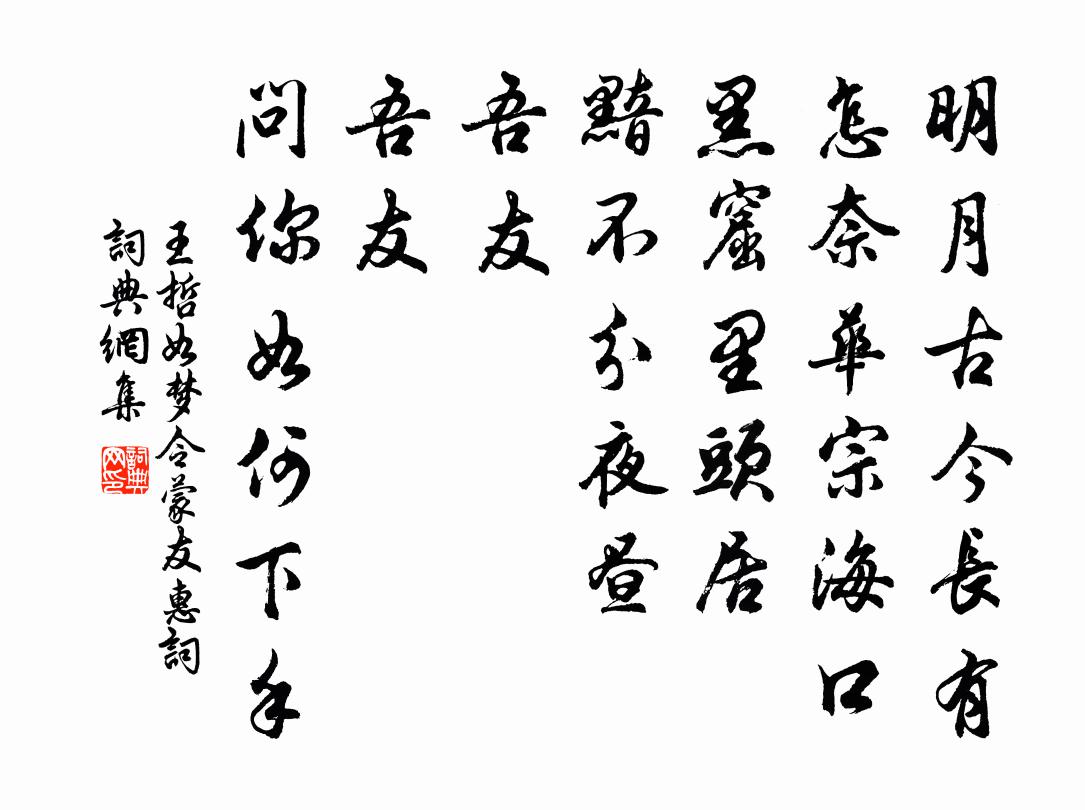 明月古今長有
怎奈華宗海口
黑窟里頭居
黯不分夜晝
吾友
吾友
問你如何下手
王哲如梦令蒙友惠詞
詞典網集
詞典网印